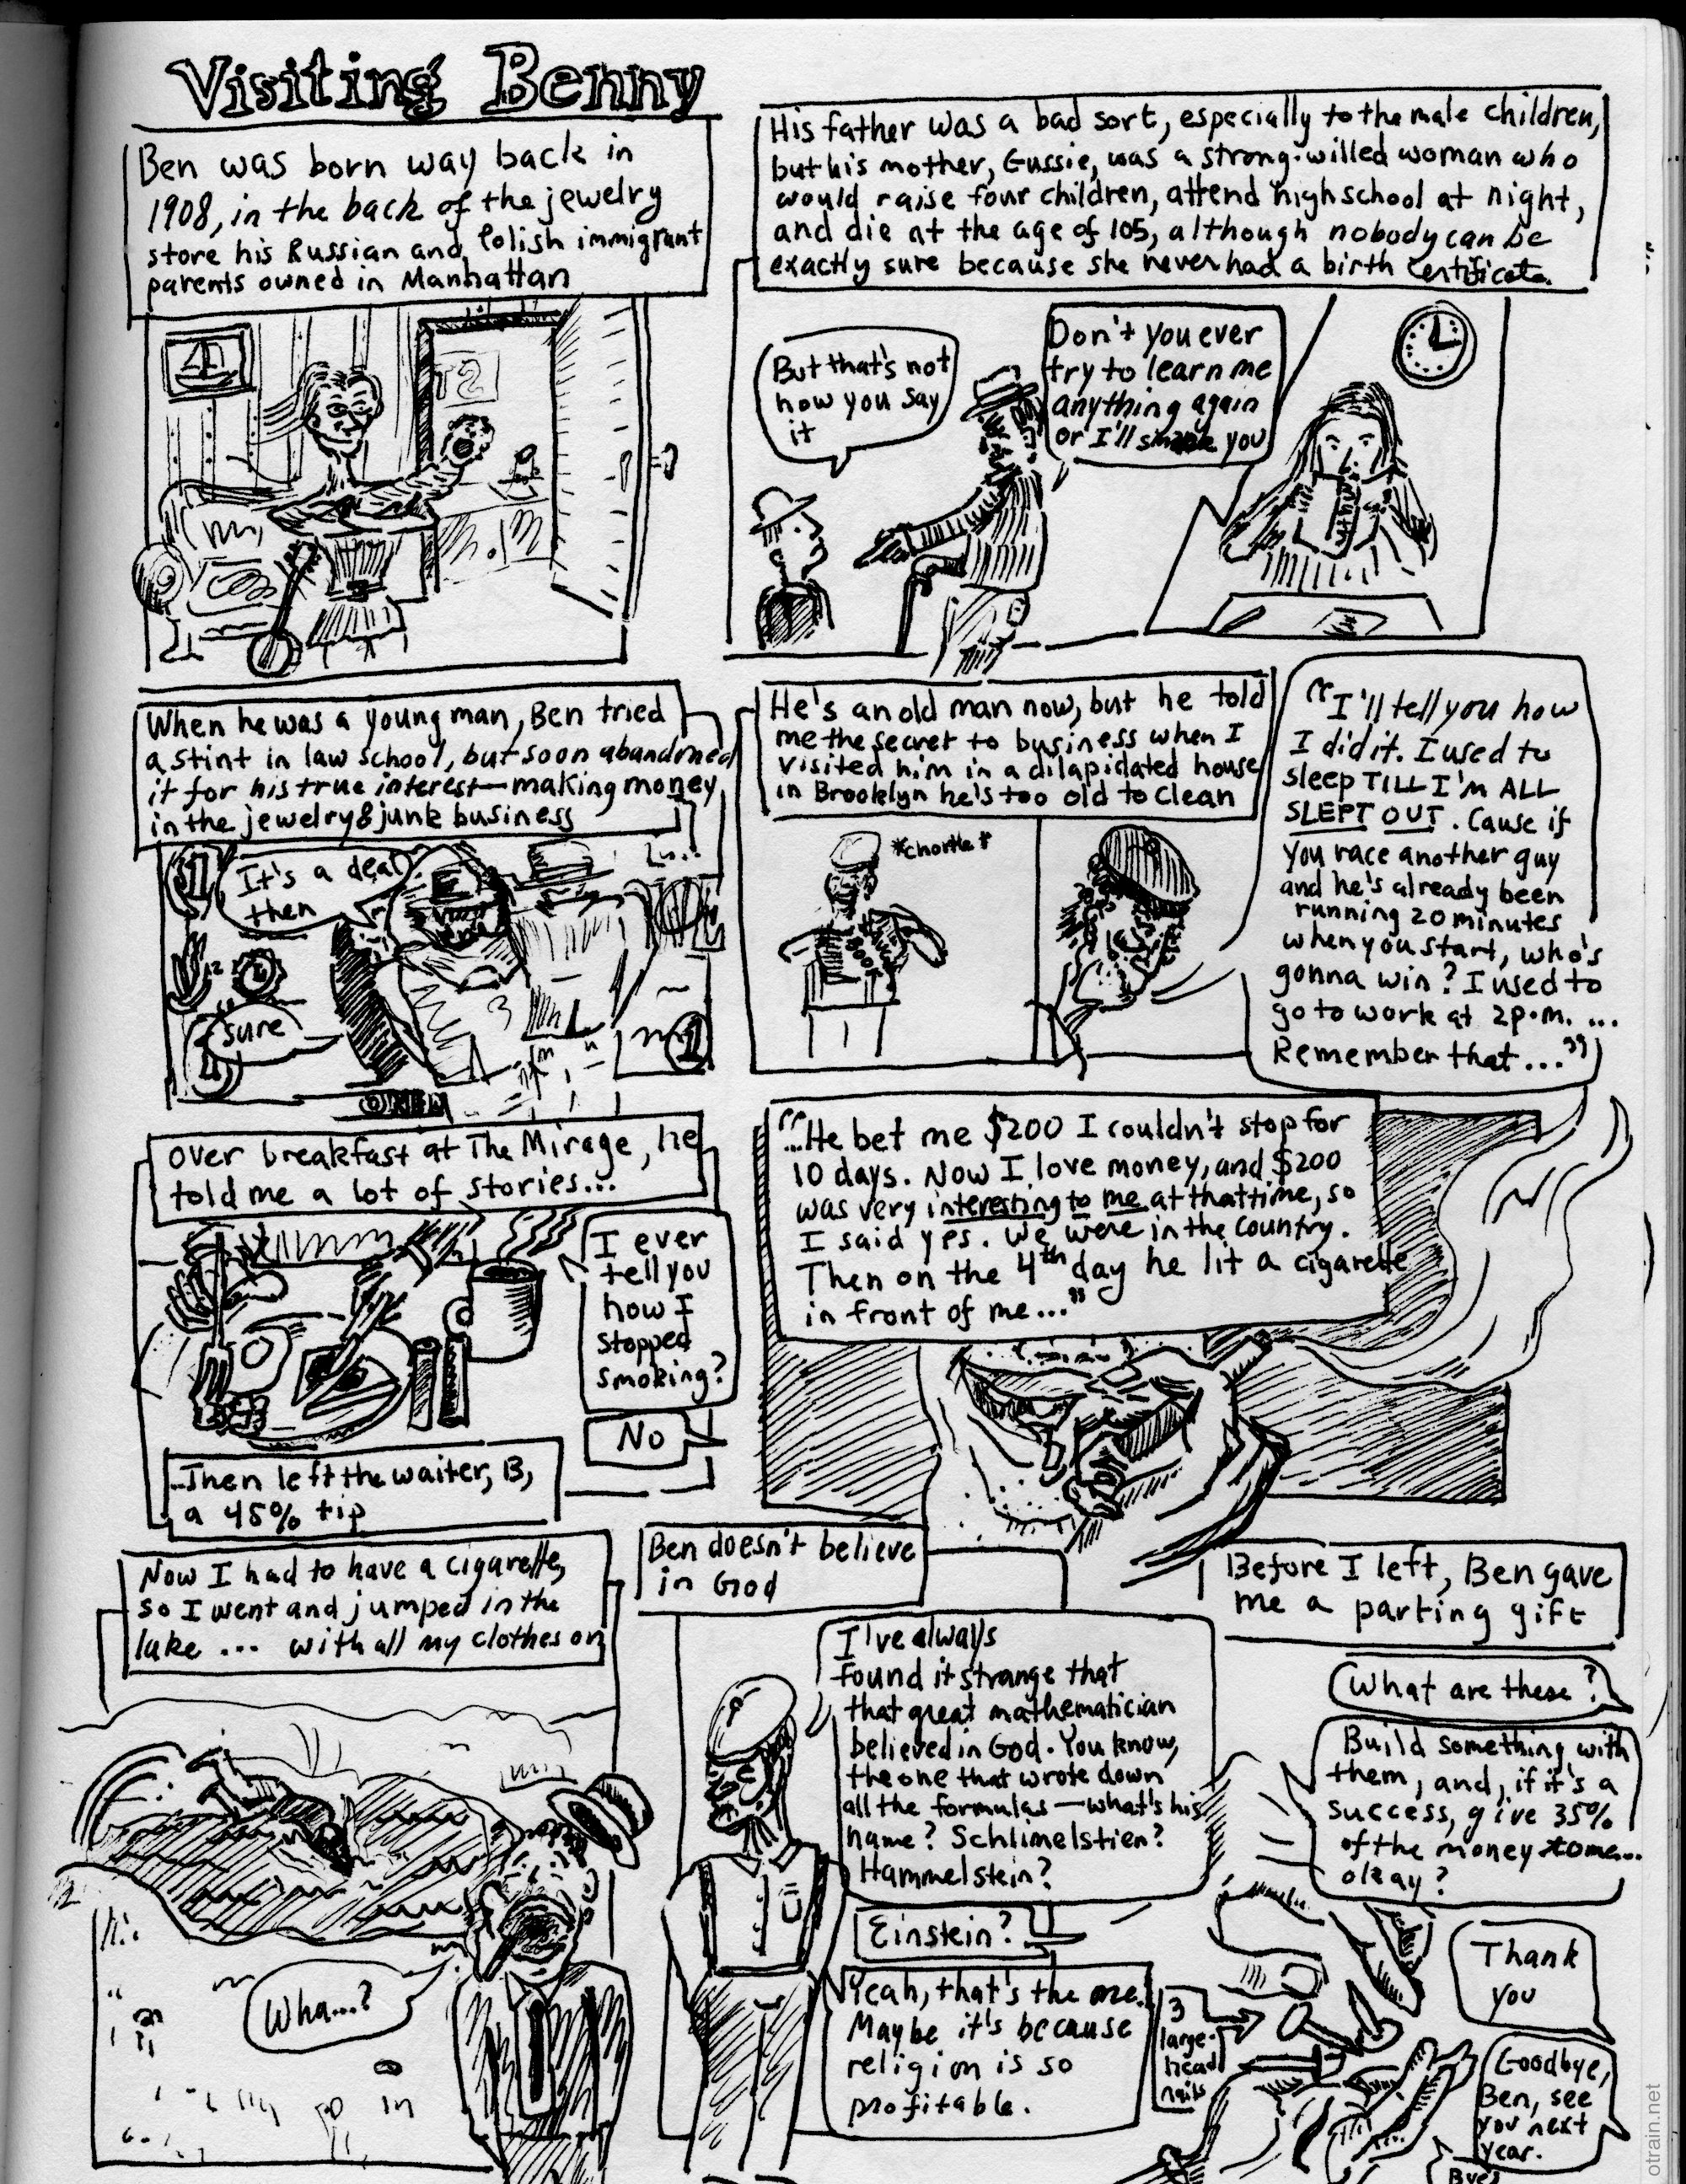 Visiting Benny
Ben was born way back in
1908, in the back of the jewelry
store his Russian and Polish immigrant
parents owned in Manhattan
His father was a bad sort, especially to the male children,
but his mother, Gussie, was a strong-willed woman who
would raise four children, attend highschool at night,
and die at the age of 105, although nobody can be
exactly sure because she never had a birth certificate.
But that's not
how you say
it
Don't you ever
try to learn me
anything again
or I'll smack you
When he was a young man, Ben tried
a stint in law school, but soon abandoned
it for his true interest—making money
in the jewelry & junk business
It's a deal
then
Sure
OPEN
He's an old man now, but he told
me the secret to business when I
visited him in a dilapidated house
in Brooklyn he's too old to clean
*chortle*
"I'll tell you how
I did it. I used to
sleep TILL I'M ALL
SLEPT OUT. Cause if
you race another guy
and he's already been
running 20 minutes
when you start, who's
gonna win? I used to
go to work at 2p.m. ...
Remember that..."
over breakfast at The Mirage, he
told me a lot of stories...
I ever
tell you
how I
stopped
smoking?
No
...Then left the waiter, B,
a 45% tip
"...He bet me $200 I couldn't stop for
10 days. Now I love money, and $200
was very interesting to me at that time, so
I said yes. We were in the country.
Then on the 4th day he lit a cigarette
in front of me..."
Now I had to have a cigarette,
so I went and jumped in the
lake ... with all my clothes on
Wha...?
Ben doesn't believe
in God
I've always
found it strange that
that great mathematician
believed in God. You know,
the one that wrote down
all the formulas—what's his
name? Schlimelstien?
Hammelstein?
Einstein?
Yeah, that's the one.
Maybe it's because
religion is so
profitable.
Before I left, Ben gave
me a parting gift
What are these?
Build something with
them, and, if it's a
success, give 35%
of the money to me...
okay?
3
large-
head
nails
Thank
you
Goodbye,
Ben, see
you next
year.
Bye
otrain.net